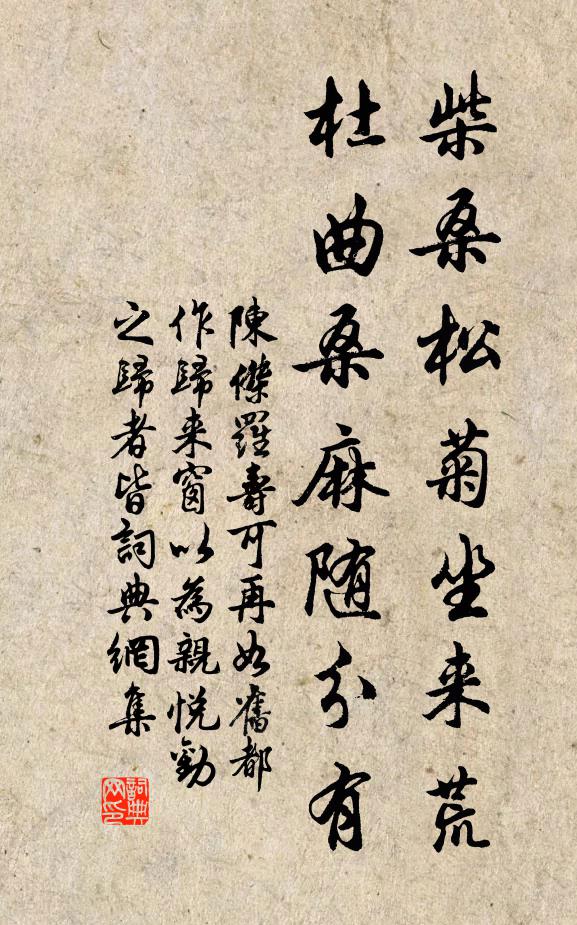 柴桑松菊坐来荒
杜曲桑麻随分有
陳傑羅壽可再如舊都
作歸来窗以為親悅勸
之歸者皆詞典網集
詞典
网印